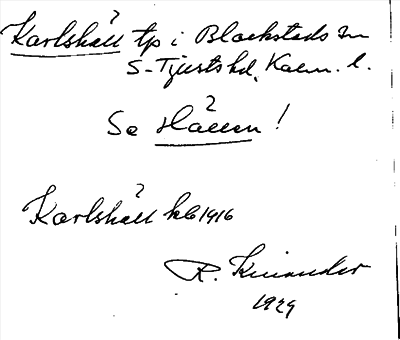 Karlshäll tp i Blackstads sn
S-Tjusts hd, Kalm. l.
Se Hallen!
Karlshäll kb 1916
R. Kinander
1929